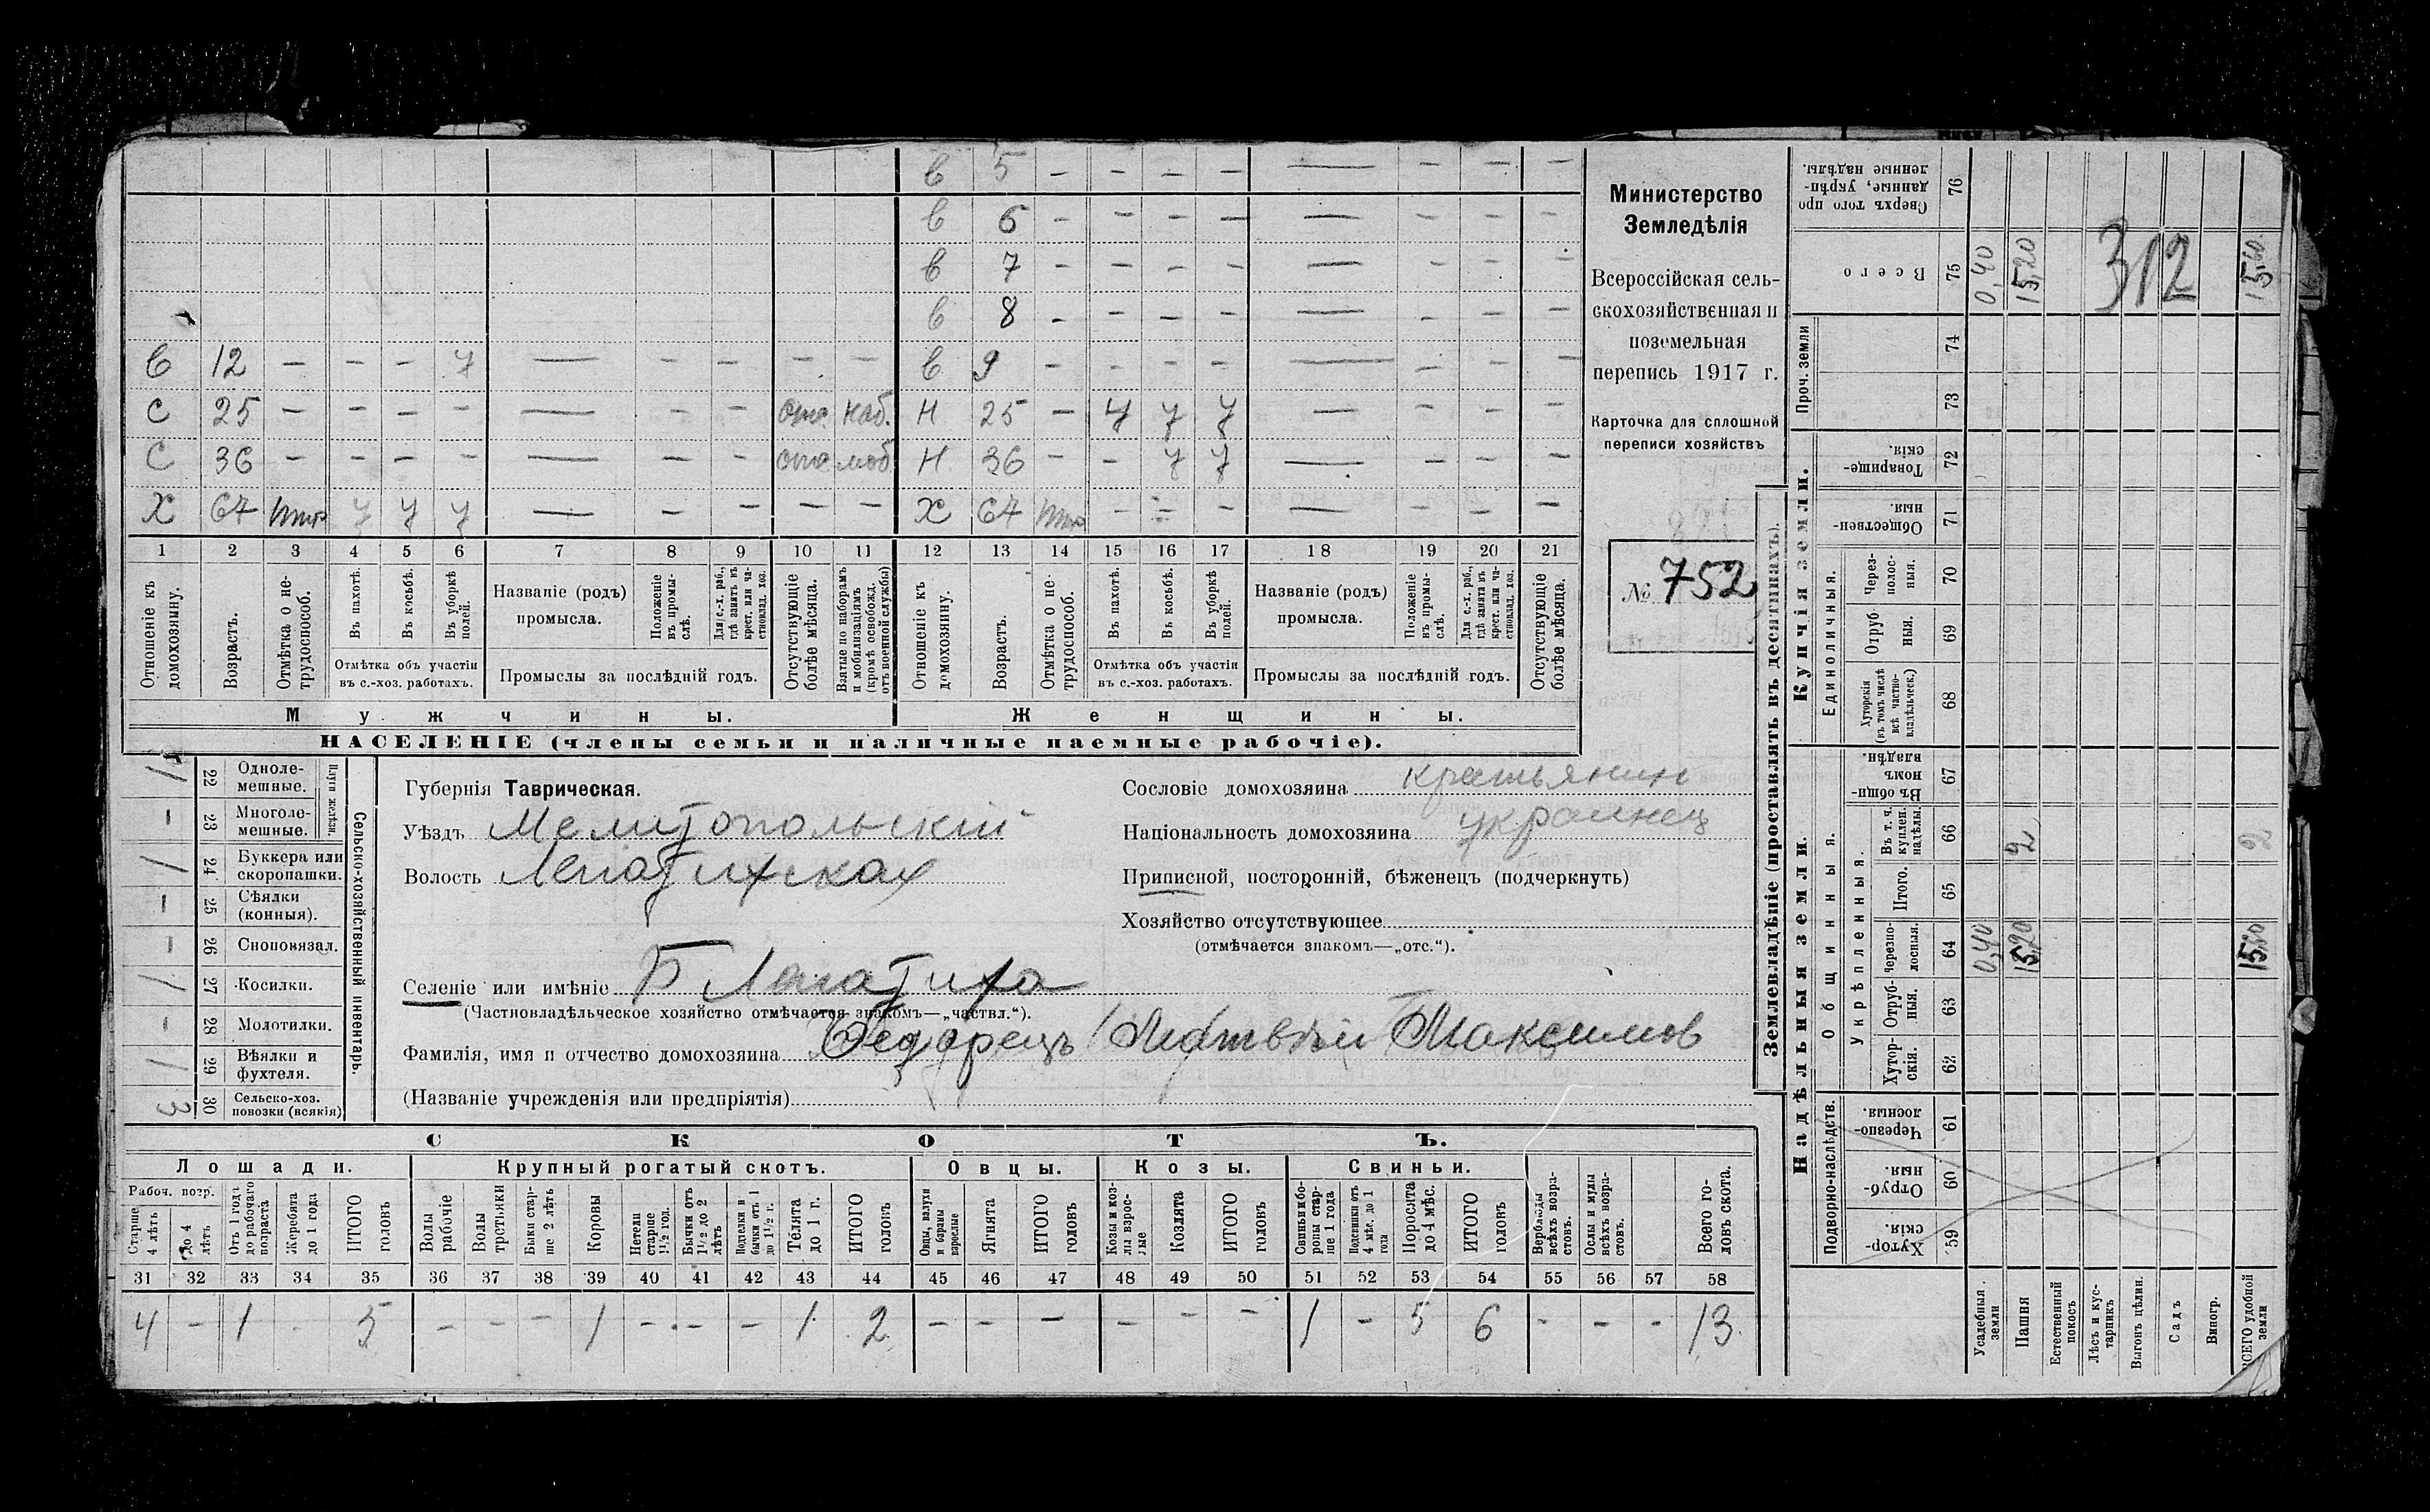 в 5 — — — — — — — —
в 6 — — — — — — — —
в 7 — — — — — — — —
в 8 — — — — — — — —
в 12 — — — у — — — — — в 9 — — — — — — — —
с 25 — — — — — — — отс. наб. н 25 — у у у — — — —
с 36 — — — — — — — отс моб н 36 — — у у — — — —
х 67 у у у — — — — — х 67 — — — — — — —
1 2 3 4 5 6 7 8 9 10 11 12 13 14 15 16 17 18 19 20 21
Отношеніе къ домохозяину.
Возрастъ.
Отмѣтка о не-трудоспособ.
Въ пахотѣ.
Въ косьбѣ.
Въ уборкѣ полей.
Отмѣтка объ участіи
въ с.-хоз. работахъ.
Названіе (родъ)
промысла.
Положеніе въ промы-слѣ.
Для с.-х. раб., гдѣ занятъ въ крест. или ча-стновлад. хоз.
Промыслы за послѣдній годъ.
Отсутствующіе болѣе мѣсяца.
Взятые по наборамъ и мобилизаціямъ (кромѣ освобожд. отъ военной службы)
Отношеніе къ домохозяину.
Возрастъ.
Отмѣтка о не-трудоспособ.
Въ пахотѣ.
Въ косьбѣ.
Въ уборкѣ полей.
Отмѣтка объ участіи
въ с.-хоз. работахъ.
Названіе (родъ)
промысла.
Положеніе въ промы-слѣ.
Для с.-х. раб., гдѣ занята въ крест. или ча-стновлад. хоз.
Промыслы за послѣдній годъ.
Отсутствующіе болѣе мѣсяца.
Мужчины. Женщины.
НАСЕЛЕНІЕ (члены семьи и наличные наемные рабочіе).
Министерство
Земледѣлія
Всероссійская сель-
скохозяйственная и
поземельная
перепись 1917 г.
Карточка для сплошной
переписи хозяйствъ
№ 752
Сельско-хозяйственный инвентарь.
1 22 Одноле-мешные.
— 23 Многоле-мешные.
1 24 Буккера или скоропашки.
— 25 Сѣялки (конныя).
— 26 Сноповязал.
1 27 Косилки.
— 28 Молотилки.
1 29 Вѣялки и фухтеля.
3 30 Сельско-хоз. повозки (всякія)
Губернія Таврическая.
Уѣздъ Мелитопольскій
Волость Лепатихская
Селеніе или имѣніе Б Лепатиха
(Частновладѣльческое хозяйство отмѣчается знакомъ—„частвл.“).
Фамилія, имя и отчество домохозяина Федорецъ Матвѣй Максимов
(Названіе учрежденія или предпріятія)
Сословіе домохозяина крестьянин
Національность домохозяина украинец
Приписной, посторонній, бѣженецъ (подчеркнуть)
Хозяйство отсутствующее
(отмѣчается знакомъ—„отс.“).
СКОТЪ.
Лошади. Крупный рогатый скотъ. Овцы. Козы. Свиньи.
Рабоч. возр.
Старше 4 лѣтъ
До 4 лѣтъ
Отъ 1 года до рабочаго возраста
Жеребята до 1 года
ИТОГО головъ
Волы рабочіе
Волы третьяки
Быки стар-ше 2 лѣтъ
Коровы
Нетели старше 1½ год.
Бычки отъ 1½ до 2 лѣтъ
Подтелки и бычки отъ 1 до 1½ г.
Телята до 1 г.
ИТОГО головъ
Овцы, валухи и бараны взрослые
Ягнята
ИТОГО головъ
Козы и коз-лы взрос-лые
Козлята
ИТОГО головъ
Свиньи и бо-ровы стар-ше 1 года
Подсвинки отъ 4 мѣс. до 1 года
Поросята до 4 мѣс.
ИТОГО головъ
Верблюды всѣхъ возра-стовъ.
Ослы и мулы всѣхъ возра-стовъ.
Всего го-ловъ скота.
31 32 33 34 35 36 37 38 39 40 41 42 43 44 45 46 47 48 49 50 51 52 53 54 55 56 57 58
4 — 1 5 — — — 1 — — — 1 2 — — — — — — 1 — 5 6 — — — 13
Землевладѣніе (проставлять въ десятинахъ).
Сверхъ того про-данные, укрѣп-ленные надѣлы. 76
Всего 75 0,40 15,20 15,60
312
Проч. земли 74 73
Купчія земли.
Товарище-скія. 72
Обществен-ныя. 71
Единоличныя.
Через-полос-ныя. 70
Отруб-ныя. 69
Хуторскія (въ томъ числѣ всѣ частно-владѣльческ.) 68
Надѣльныя земли.
Общинныя.
Въ общи-номъ владѣн. 67
Укрѣпленныя.
Въ т. ч. куплен. надѣлы. 66 2 2
Итого. 65
Черезпо-лосныя. 64 0,40 15,20 15,60
Отруб-ныя. 63
Хутор-скія. 62
Подворно-наслѣдств.
Черезпо-лосныя. 61
Отруб-ныя. 60
Хутор-скія. 59
Усадебныя земли
Пашня
Естественный покосъ
Лѣсъ и кус-тарникъ
Выгонъ цѣлин.
Садъ
Виногр.
ВСЕГО удобной земли